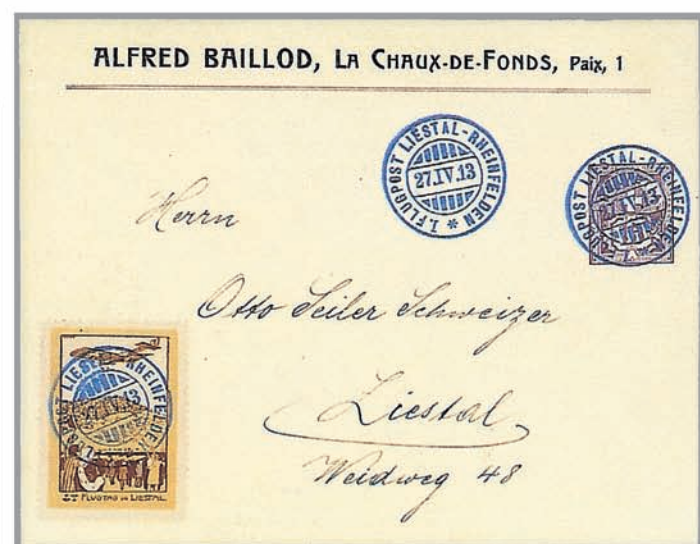 ALFRED BAILLOD, LA CHAUX-DE-FONDS, Paix, 1
1. FLUGPOST LIESTAL-RHEINFELDEN *
27.IV.13
FLUGPOST LIESTAL-RHEINFELDEN
27.IV.13
Herrn
Otto Seiler Schweizer
Liestal
Weidweg 48
LIESTAL-RHEINFELDEN
27.IV.13
FLUGTAG IN LIESTAL